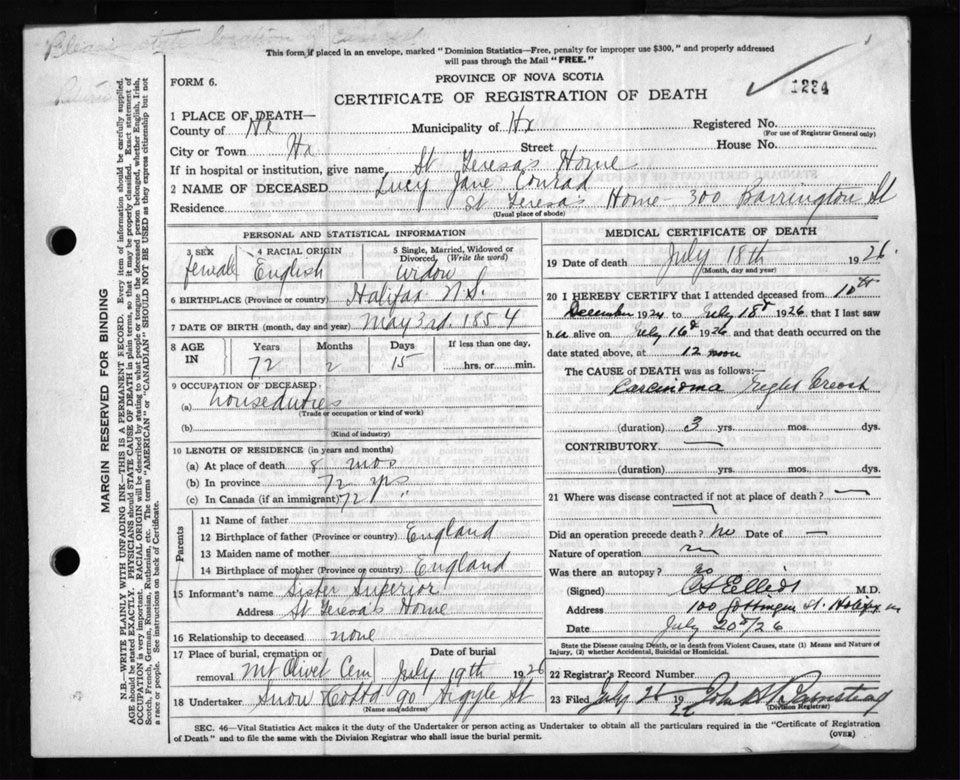 Please state location of
This form if placed in an envelope, marked "Dominion Statistics—Free, penalty for improper use $300," and properly addressed
will pass through the Mail "FREE."
FORM 6.
PROVINCE OF NOVA SCOTIA
CERTIFICATE OF REGISTRATION OF DEATH
1234
1 PLACE OF DEATH—
County of Hx Municipality of Hx Registered No.
(For use of Registrar General only)
City or Town Hx Street House No.
If in hospital or institution, give name St Teresa's Home
2 NAME OF DECEASED Lucy Jane Conrad
Residence St Teresa's Home - 300 Barrington St
(Usual place of abode)
PERSONAL AND STATISTICAL INFORMATION
3 SEX female
4 RACIAL ORIGIN English
5 Single, Married, Widowed or Divorced, (Write the word) widow
6 BIRTHPLACE (Province or country) Halifax N.S.
7 DATE OF BIRTH (month, day and year) May 3rd. 1854
8 AGE IN Years Months Days If less than one day,
72 2 15 hrs. or min.
9 OCCUPATION OF DECEASED
(a) house duties
(Trade or occupation or kind of work)
(b)
(Kind of industry)
10 LENGTH OF RESIDENCE (in years and months)
(a) At place of death 8 mos
(b) In province 72 yrs
(c) In Canada (if an immigrant) 72 "
Parents
11 Name of father
12 Birthplace of father (Province or country) England
13 Maiden name of mother
14 Birthplace of mother (Province or country) England
15 Informant's name Sister Superior
Address St Teresa's Home
16 Relationship to deceased none
17 Place of burial, cremation or removal Mt Olivet Cem Date of burial July 19th 1926
18 Undertaker Snow 90 Argyle St
(Name and address)
MEDICAL CERTIFICATE OF DEATH
19 Date of death July 18th 1926.
(Month, day and year)
20 I HEREBY CERTIFY that I attended deceased from 10th
December 1924 to July 18th 1926 that I last saw
her alive on July 16th 1926 and that death occurred on the
date stated above, at 12 noon
The CAUSE OF DEATH was as follows:
Carcinoma Right Breast
(duration) 3 yrs. mos. dys.
CONTRIBUTORY —
(duration) yrs. mos. dys.
21 Where was disease contracted if not at place of death? —
Did an operation precede death? No Date of —
Nature of operation
Was there an autopsy? no
(Signed) Elliot M.D.
Address 100 Gottingen St. Halifax
Date July 20th/26
State the Disease causing Death, or in death from Violent Causes, state (1) Means and Nature of
Injury, (2) whether Accidental, Suicidal or Homicidal.
22 Registrar's Record Number
23 Filed July 19 John
(Division Registrar)
SEC. 46—Vital Statistics Act makes it the duty of the Undertaker or person acting as Undertaker to obtain all the particulars required in the "Certificate of Registration
of Death" and to file the same with the Division Registrar who shall issue the burial permit.
(OVER)
MARGIN RESERVED FOR BINDING
N.B.—WRITE PLAINLY WITH UNFADING INK—THIS IS A PERMANENT RECORD. Every item of information should be carefully supplied.
AGE should be stated EXACTLY. PHYSICIANS should STATE CAUSE OF DEATH in plain terms, so that it may be properly classified. Exact statement of
OCCUPATION is very important. RACIAL ORIGIN will be described by stating to what people or tongue the deceased person belonged, whether English, Irish,
Scotch, French, German, Russian, Ruthenian, etc. The terms "AMERICAN" or "CANADIAN" SHOULD NOT BE USED as they express citizenship but not
a race or people. See instructions on back of Certificate.